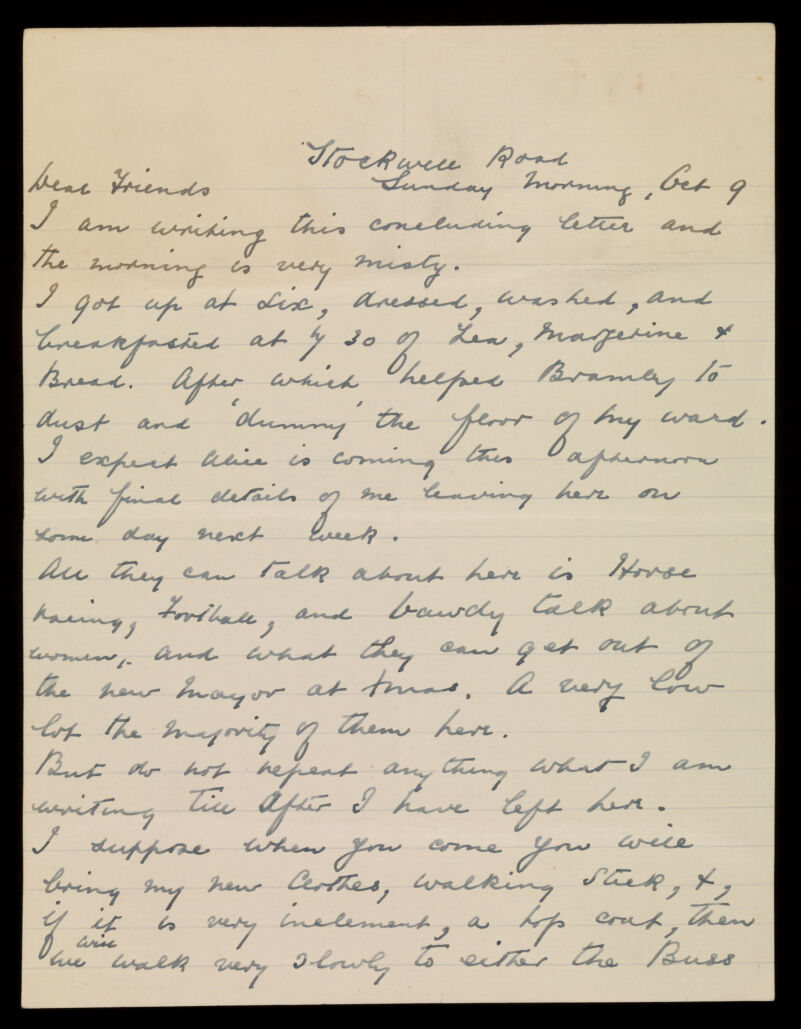 Stockwell Road
Dear Friends Sunday Morning, Oct 9
I am writing this concluding letter and
the morning is very misty.
I got up at six, dressed, washed, and
breakfasted at 7 30 of Tea, Margerine &
Bread. After which helped Bramley to
dust and 'dummy' the floor of my ward.
I expect Alice is coming this afternoon
with final details of me leaving here on
some day next week.
All they can talk about here is Horse
racing, Football, and bawdy talk about
women, and what they can get out of
the new Mayor at Xmas. A very low
lot the majority of them here.
But do not repeat anything what I am
writing till after I have left here.
I suppose when you come you will
bring my new clothes, walking stick, &,
if it is very inclement, a top coat, then
we will walk very slowly to either the Buss